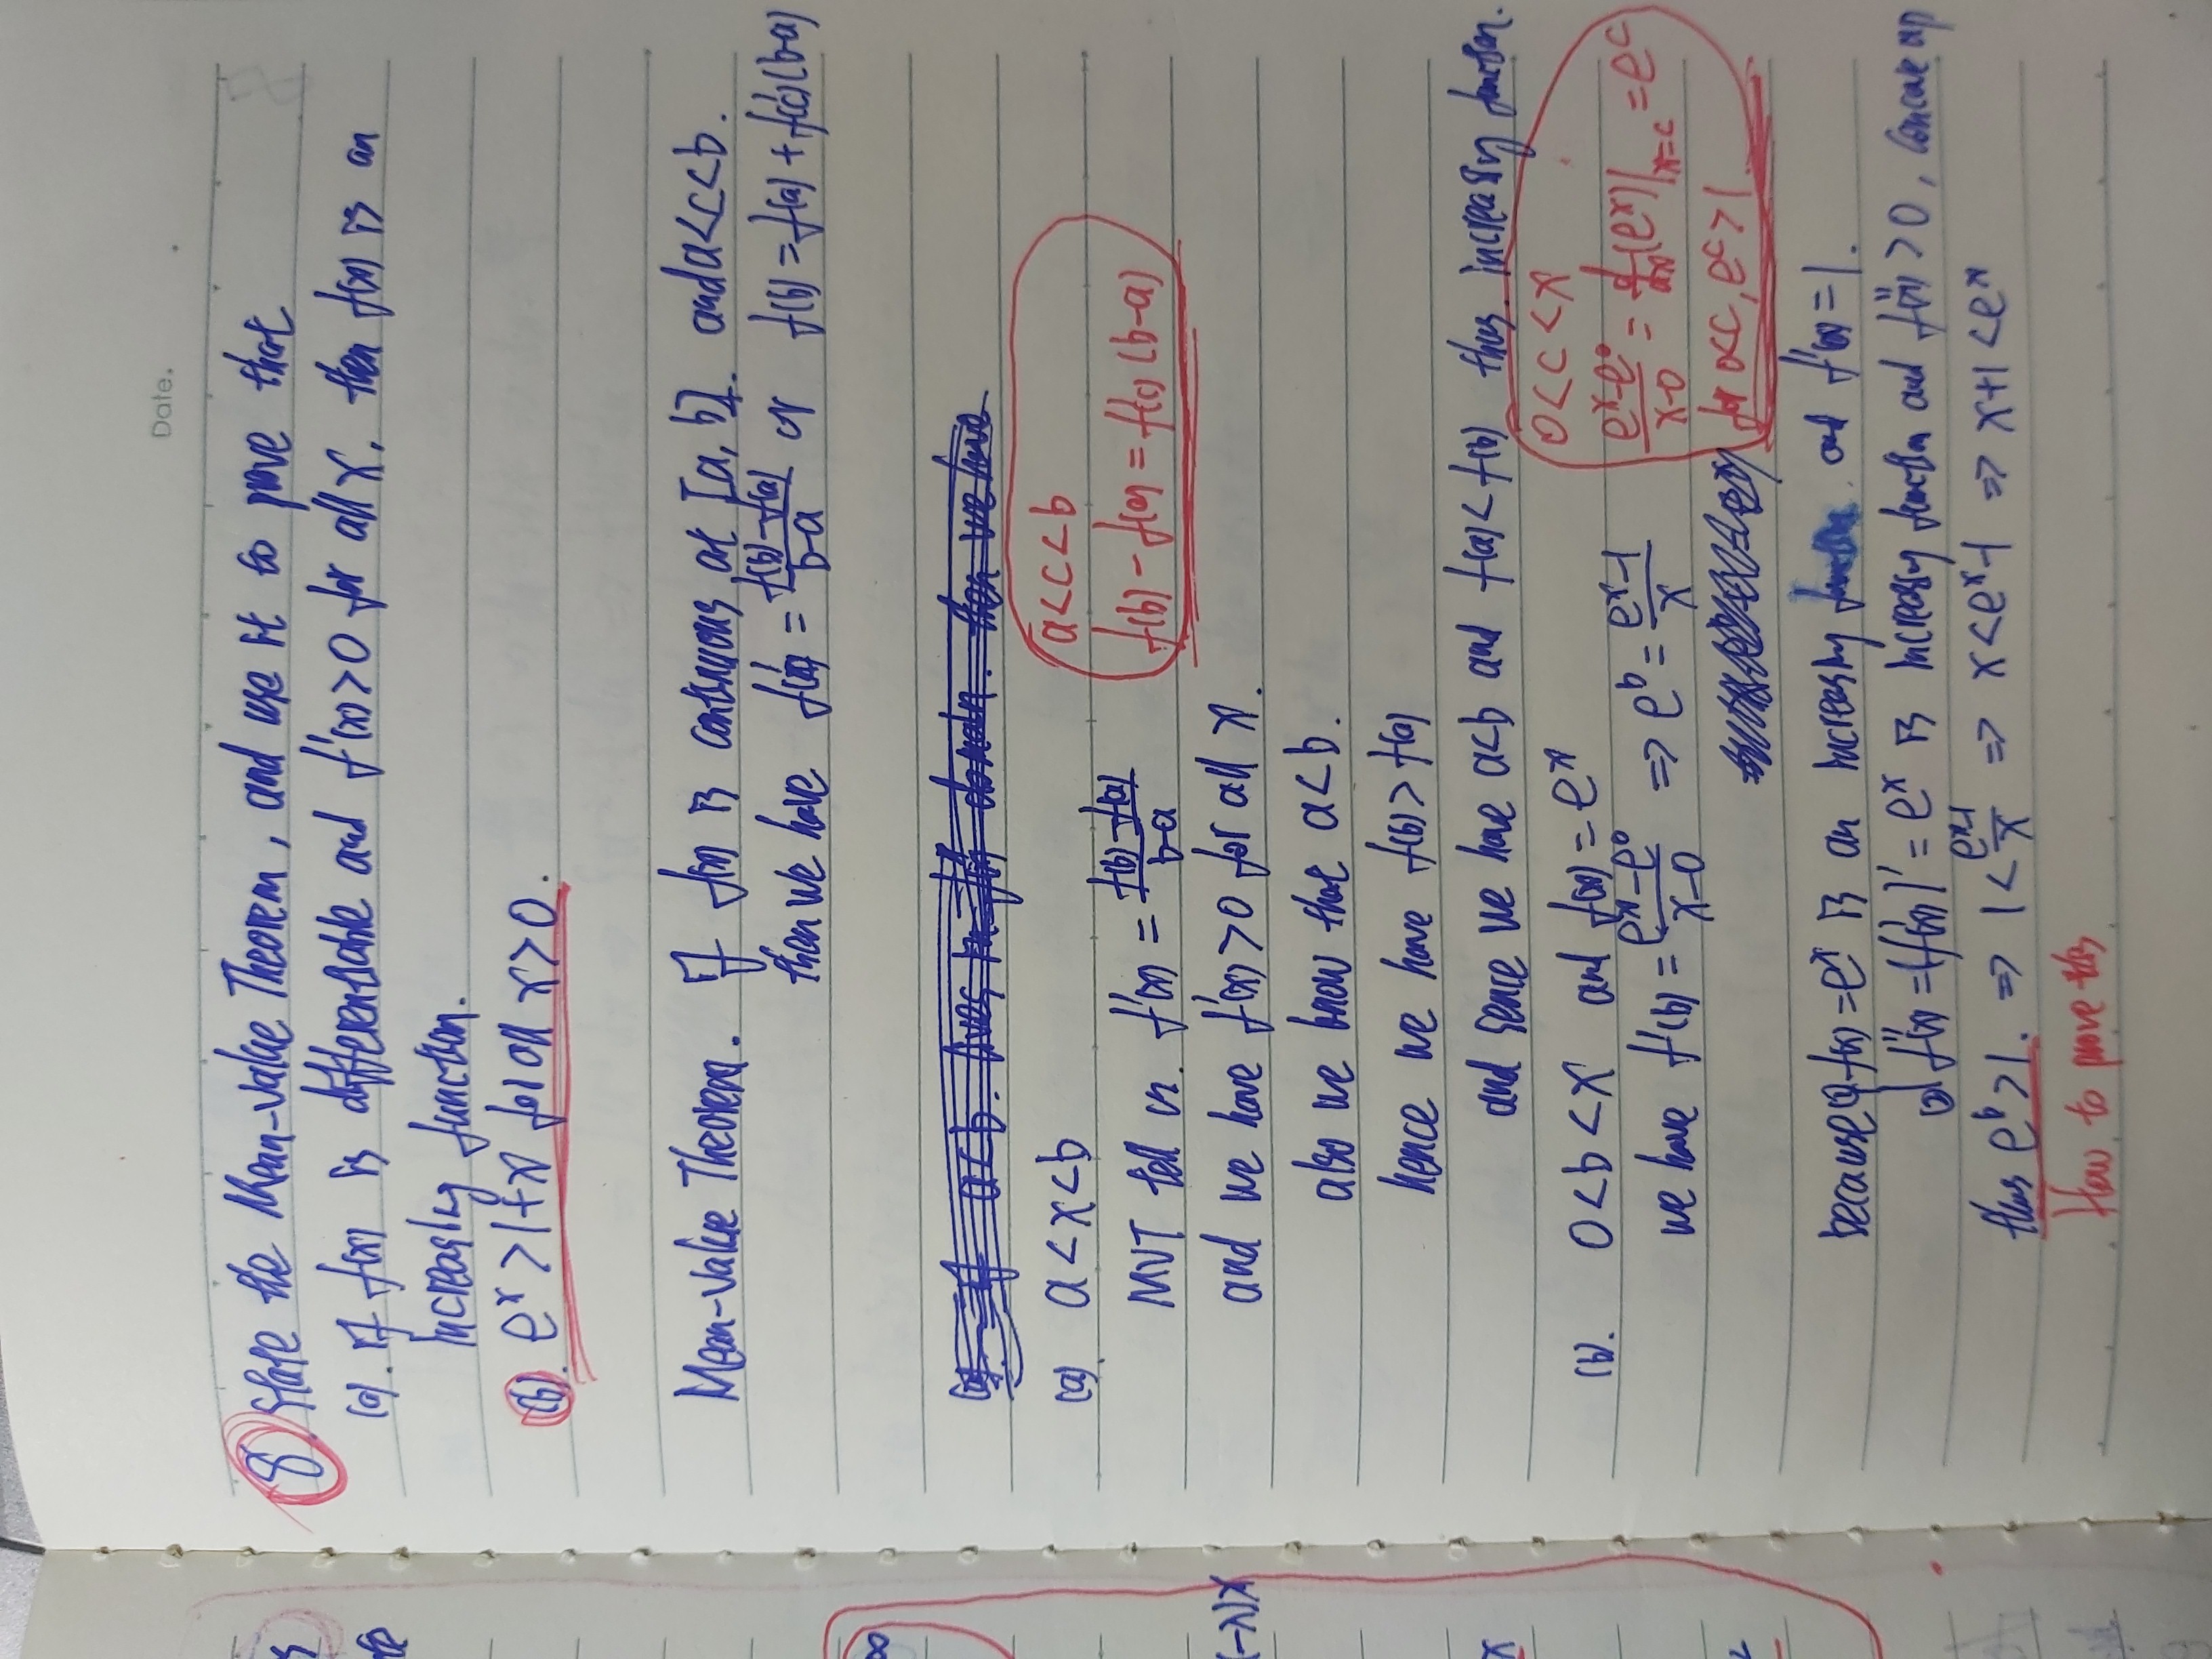 Date.
8. State the Mean-Value Theorem, and use it to prove that
(a). if f(x) is differentiable and f'(x)>0 for all x, then f(x) is an
increasing function.
(b). e^x >1+x for all x>0.
Mean-Value Theorem. If f(x) is continuous at [a, b]. and a<c<b.
then we have f'(c) = \frac{f(b)-f(a)}{b-a} or f(b) = f(a) + f'(c)(b-a)
(a). a<x<b
a<c<b
MVT tell us. f'(x) = \frac{f(b)-f(a)}{b-a}
f(b) - f(a) = f'(c) (b-a)
and we have f'(x) >0 for all x.
also we know that a<b.
hence we have f(b) > f(a)
and sence we have a<b and f(a) < f(b) thus. increasing function.
(b). 0<b<x and f(x) = e^x
0<c<x
we have f'(b) = \frac{e^x-e^0}{x-0} => e^b = \frac{e^x-1}{x}
\frac{e^x-e^0}{x-0} = \frac{d}{dx}(e^x)|_{x=c} = e^c
for 0<c, e^c>1.
because ① f(x) = e^x is an increasing function and =1.
② f''(x) = (f'(x))' = e^x is increasing function and f''(x) >0, concave up
thus e^b >1. => 1< \frac{e^x-1}{x} => x<e^x-1 => x+1<e^x
How to prove this
(-λ)x
∞
x